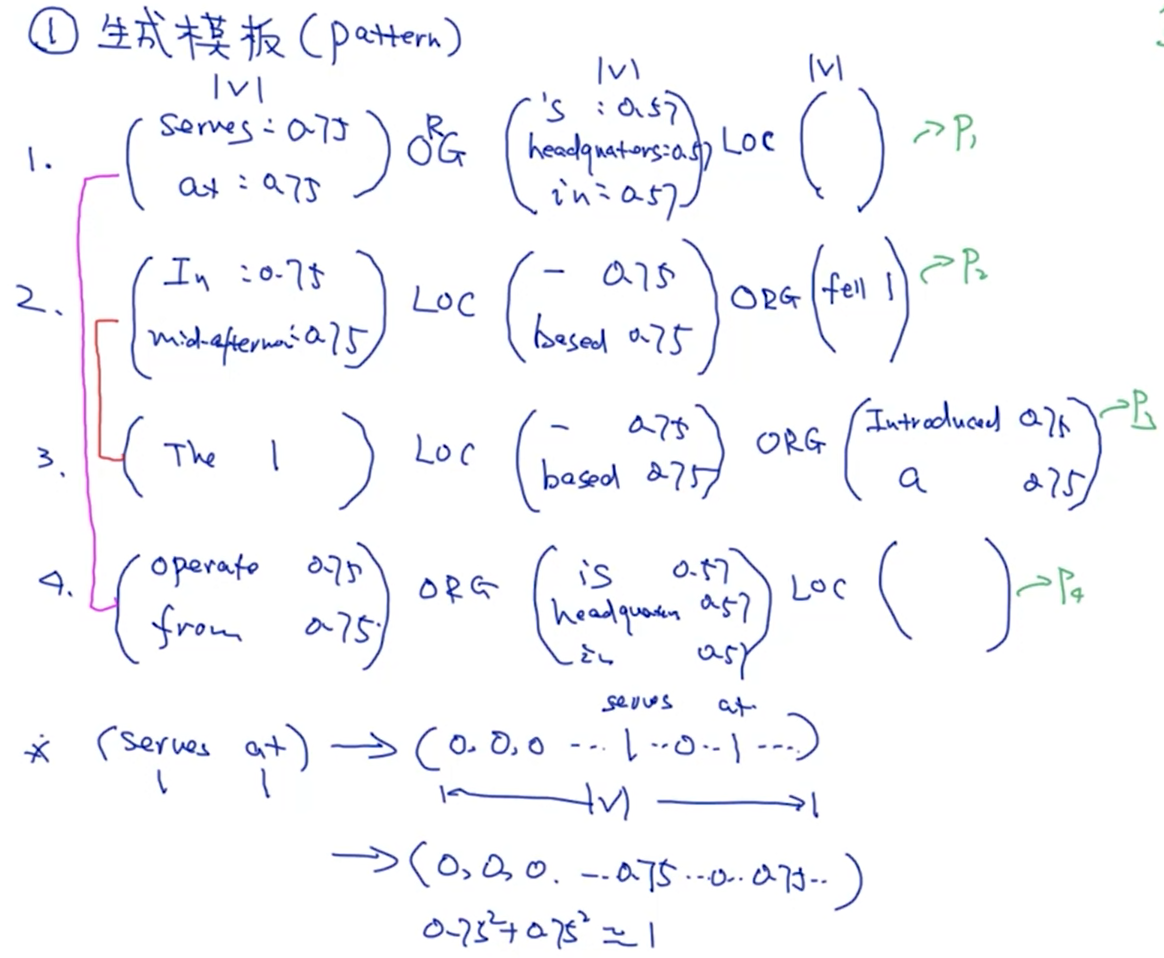 ① 生成模板(pattern)
|V| |V| |V|
1. (serves: 0.75 at: 0.75) ORG ('s : 0.57 headquaters: 0.57 in: 0.57) LOC ( ) → P₁
2. (In : 0.75 mid-afternoi: 0.75) LOC (- 0.75 based 0.75) ORG (fell 1) → P₂
3. (The 1) LOC (- 0.75 based 0.75) ORG (Introduced 0.75 a 0.75) → P₃
4. (operate 0.75 from 0.75) ORG (is 0.57 headquarters 0.57 in 0.57) LOC ( ) → P₄
serves at
* (serves at) → (0, 0, 0 --- 1 ·· 0 ·· 1 ----)
1 1 |V|
→ (0, 0, 0. --- 0.75 ··· 0 ·· 0.75 ··)
0.75² + 0.75² ≈ 1